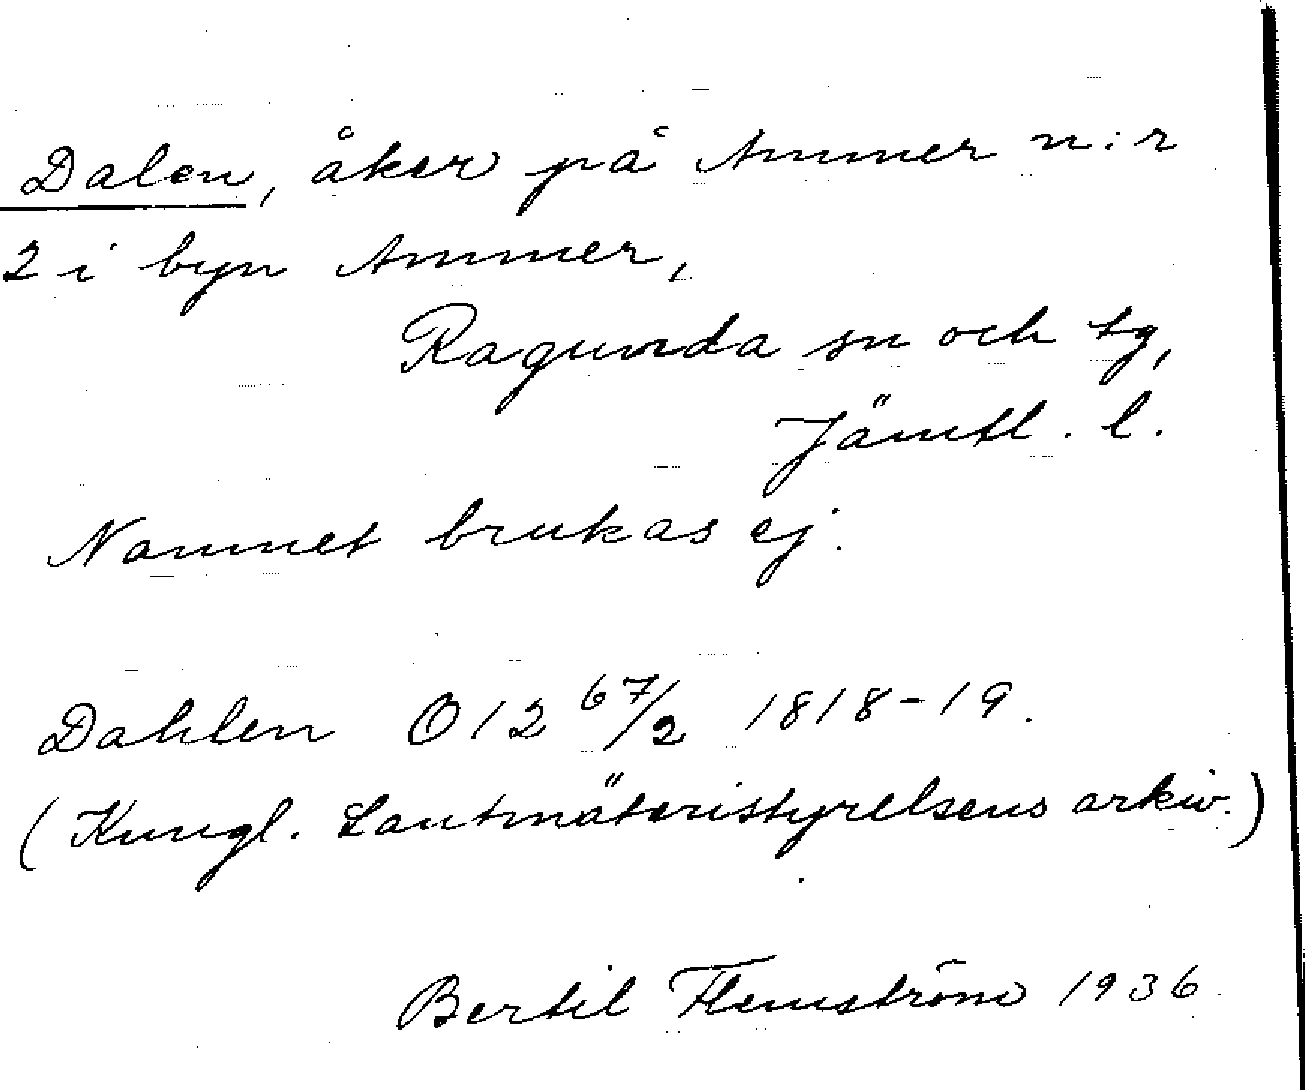 Dalen, åker på Ammer n:r
2 i byn Ammer,
Ragunda sn och tg,
Jämtl. l.
Namnet brukas ej.
Dahlen O 12 67/2 1818-19.
(Kungl. Lantmäteristyrelsens arkiv.)
Bertil Flemström 1936